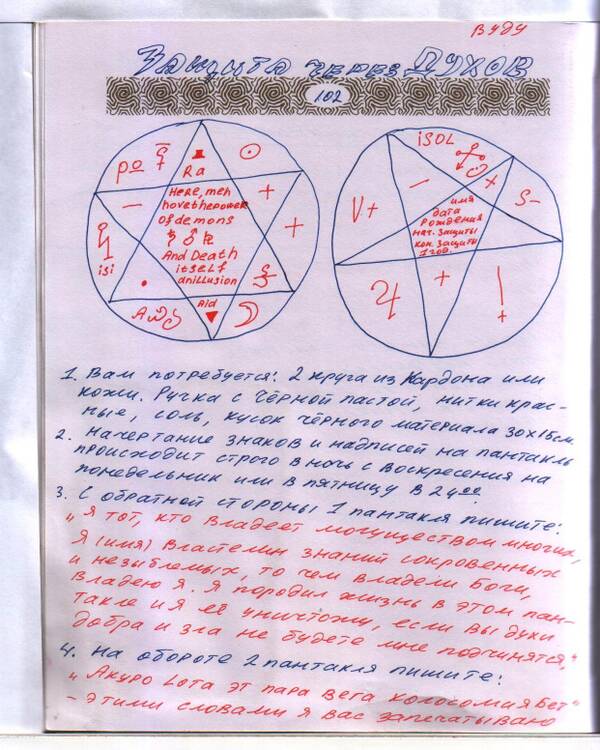 ВУДУ
Защита через Духов
102
ро
Ra
Here, meh
hovethepower
of demons
And Death
itself
anillusion
isi
Aid
iSOL
V+
S-
имя
дата
рождения
нач. защиты
кон. защиты
1 год.
1. Вам потребуется: 2 круга из Кардона или
кожи. Ручка с чёрной пастой, нитки крас-
ные, соль, кусок чёрного материала 30x15см
2. Начертание знаков и надписей на пантакль
происходит строго в ночь с воскресения на
понедельник или в пятницу в 24 00
3. С обратной стороны 1 пантакля пишите:
"Я тот, кто владеет могуществом многих,
Я (имя) Властелин знаний сокровенных
и незыблемых, то чем владели Боги,
владею Я. Я породил жизнь в этом пан-
такле и я её уничтожу, если вы духи
добра и зла не будете мне подчинятся,"
4. На обороте 2 пантакля пишите:
"Акуро Lота эт пара вега колосомия Бет"
- этими словами я вас запечатываю